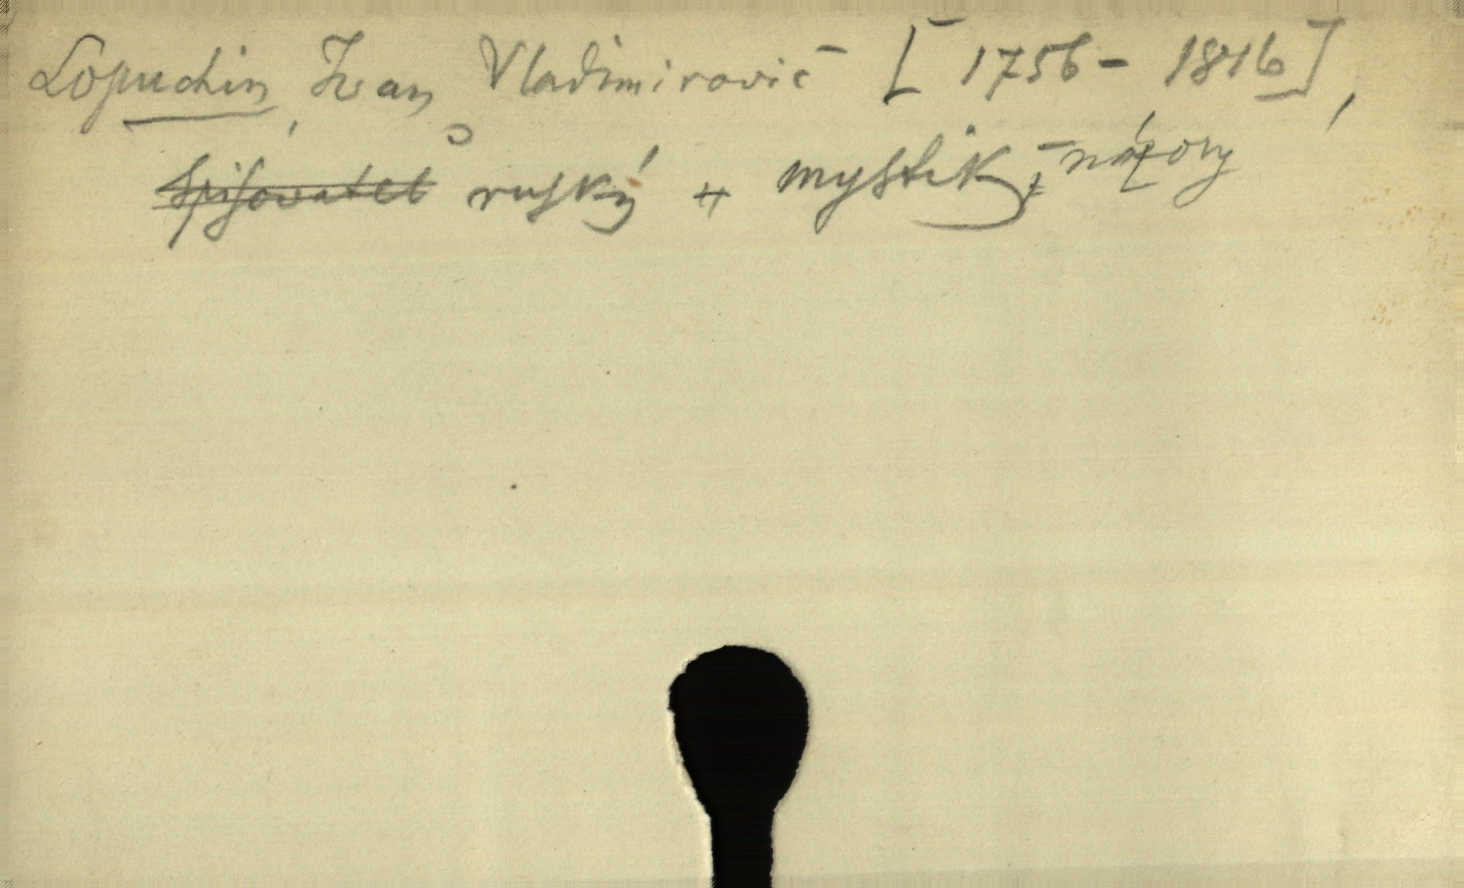 Lopuchin, Ivan Vladimirovič [1756-1816],
spisovatel ruský + mystik; - názory